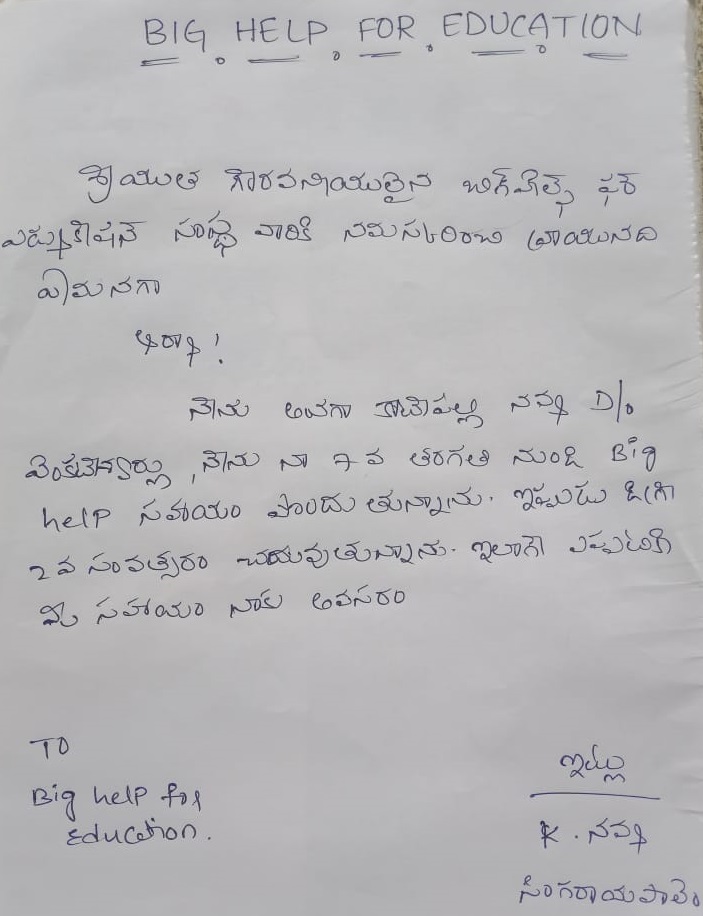 BIG HELP FOR EDUCATION
శ్రీయుత గౌరవనీయులైన బిగ్ హెల్ప్ ఫర్
ఎడ్యుకేషన్ సంస్థ వారికి నమస్కరించి వ్రాయునది
ఏమనగా
ఆర్యా!
నేను అనగా కాటేపల్లి నవ్య D/o
వెంకటేశ్వర్లు, నేను నా 7 వ తరగతి నుండి Big
help సహాయం పొందుతున్నాను. ఇప్పుడు డిగ్రీ
2 వ సంవత్సరం చదువుతున్నాను. ఇలాగే ఎప్పటికి
మీ సహాయం నాకు అవసరం
TO
Big help for
Education.
ఇట్లు
K. నవ్య
సింగరాయపాలెం